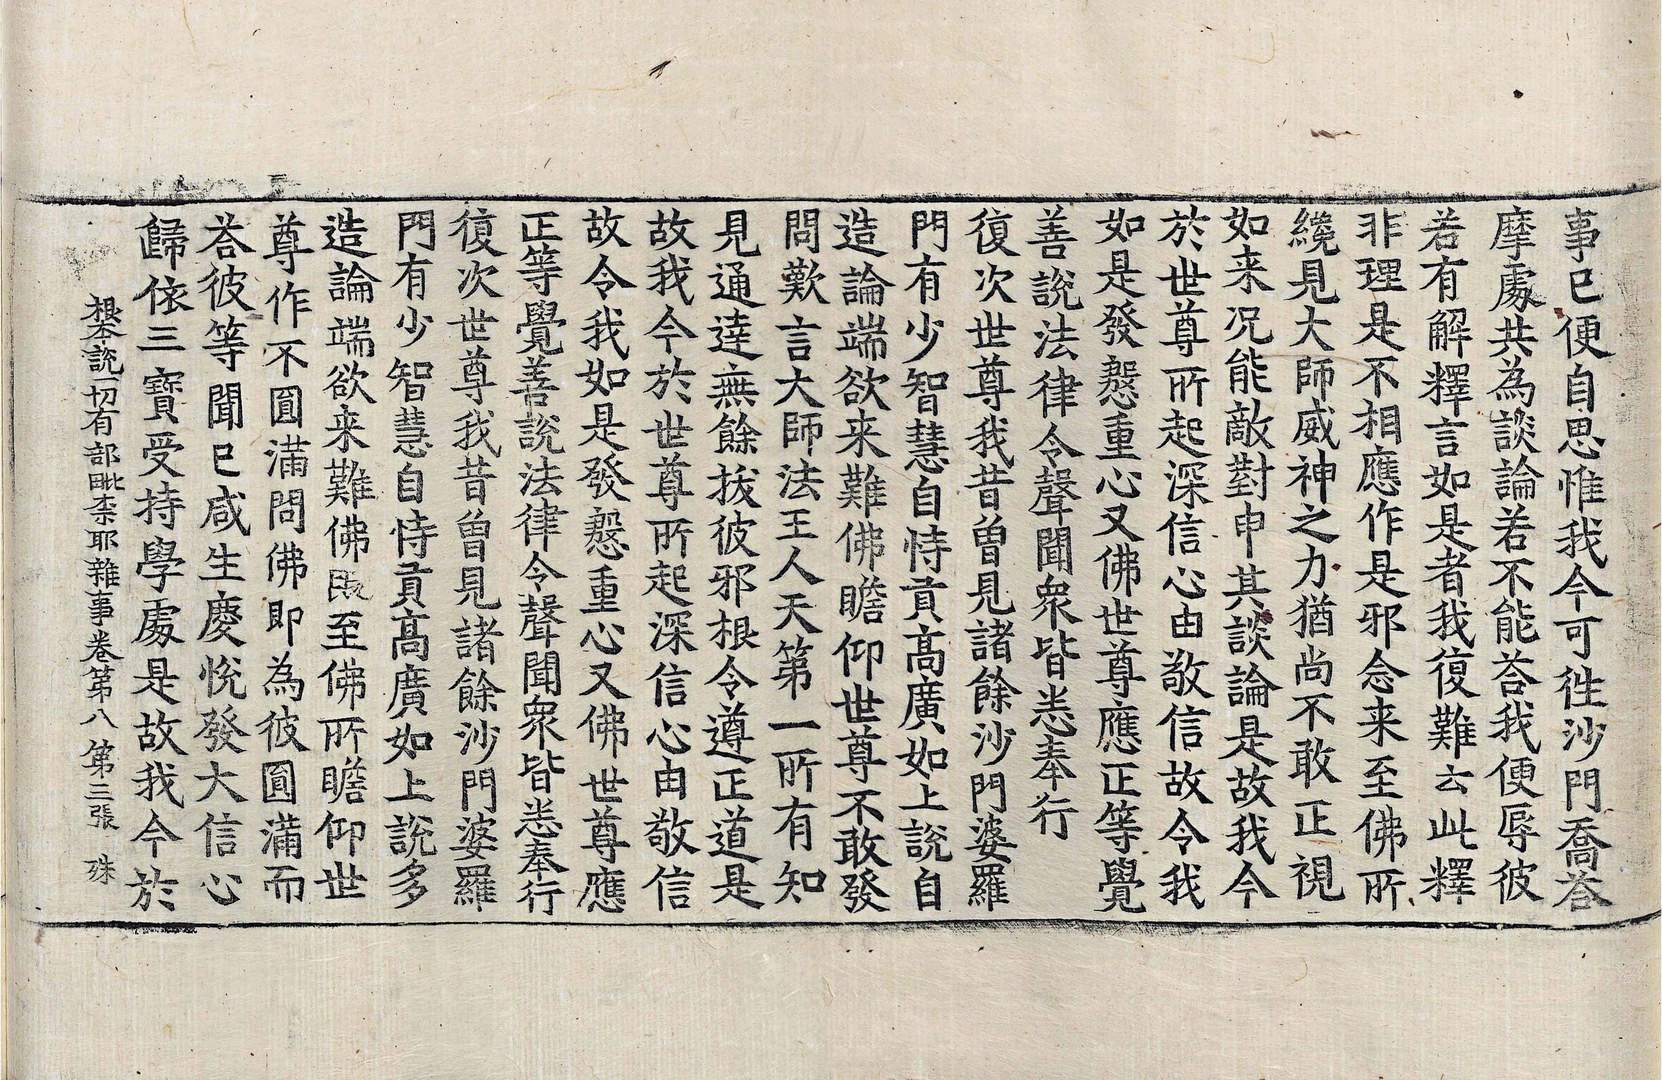 事已便自思惟我今可徃沙門喬荅
摩處共為談論若不能荅我便辱彼
若有解釋言如是者我復難云此釋
非理是不相應作是邪念来至佛所
纔見大師威神之力猶尚不敢正視
如来况能敵對申其談論是故我今
於世尊所起深信心由敬信故令我
如是發慇重心又佛世尊應正等覺
善說法律令聲聞衆皆悉奉行
復次世尊我昔曽見諸餘沙門婆羅
門有少智慧自恃貢高廣如上說自
造論端欲来難佛瞻仰世尊不敢發
問歎言大師法王人天第一所有知
見通達無餘拔彼邪根令遵正道是
故我今於世尊所起深信心由敬信
故令我如是發慇重心又佛世尊應
正等覺善說法律令聲聞衆皆悉奉行
復次世尊我昔曽見諸餘沙門婆羅
門有少智慧自恃貢高廣如上說多
造論端欲来難佛旣至佛所瞻仰世
尊作不圓滿問佛即為彼圓滿而
荅彼等聞已咸生慶悅發大信心
歸依三寶受持學處是故我今於
根本說一切有部毗柰耶雜事卷第八 第三張 殊